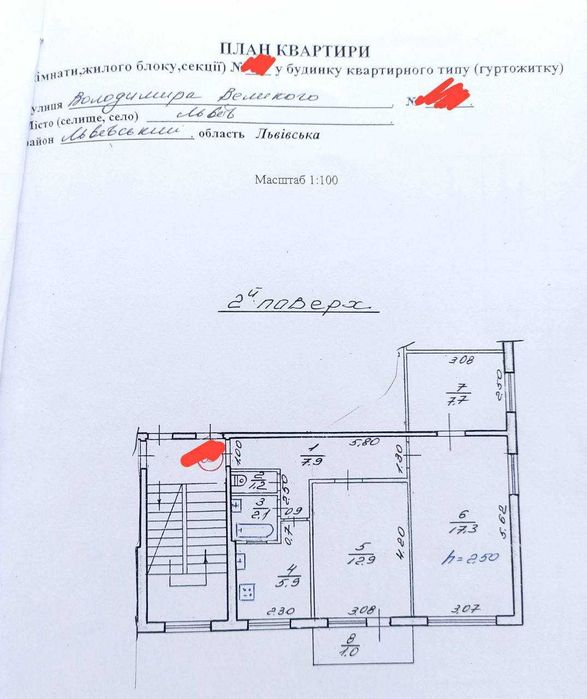 ПЛАН КВАРТИРИ
кімнати,жилого блоку,секції) № у будинку квартирного типу (гуртожитку)
вулиця Володимира Великого №
Місто (селище, село) Львів
район Львівський, область Львівська
Масштаб 1:100
2й поверх
3.08
7
7.7
2.50
1.00
1
7.9
5.80
1.30
2
1.2
2.50
3
2.1
0.9
0.7
4
5.9
5
12.9
4.20
6
17.3
5.62
h=2.50
2.30
3.08
3.07
8
1.0